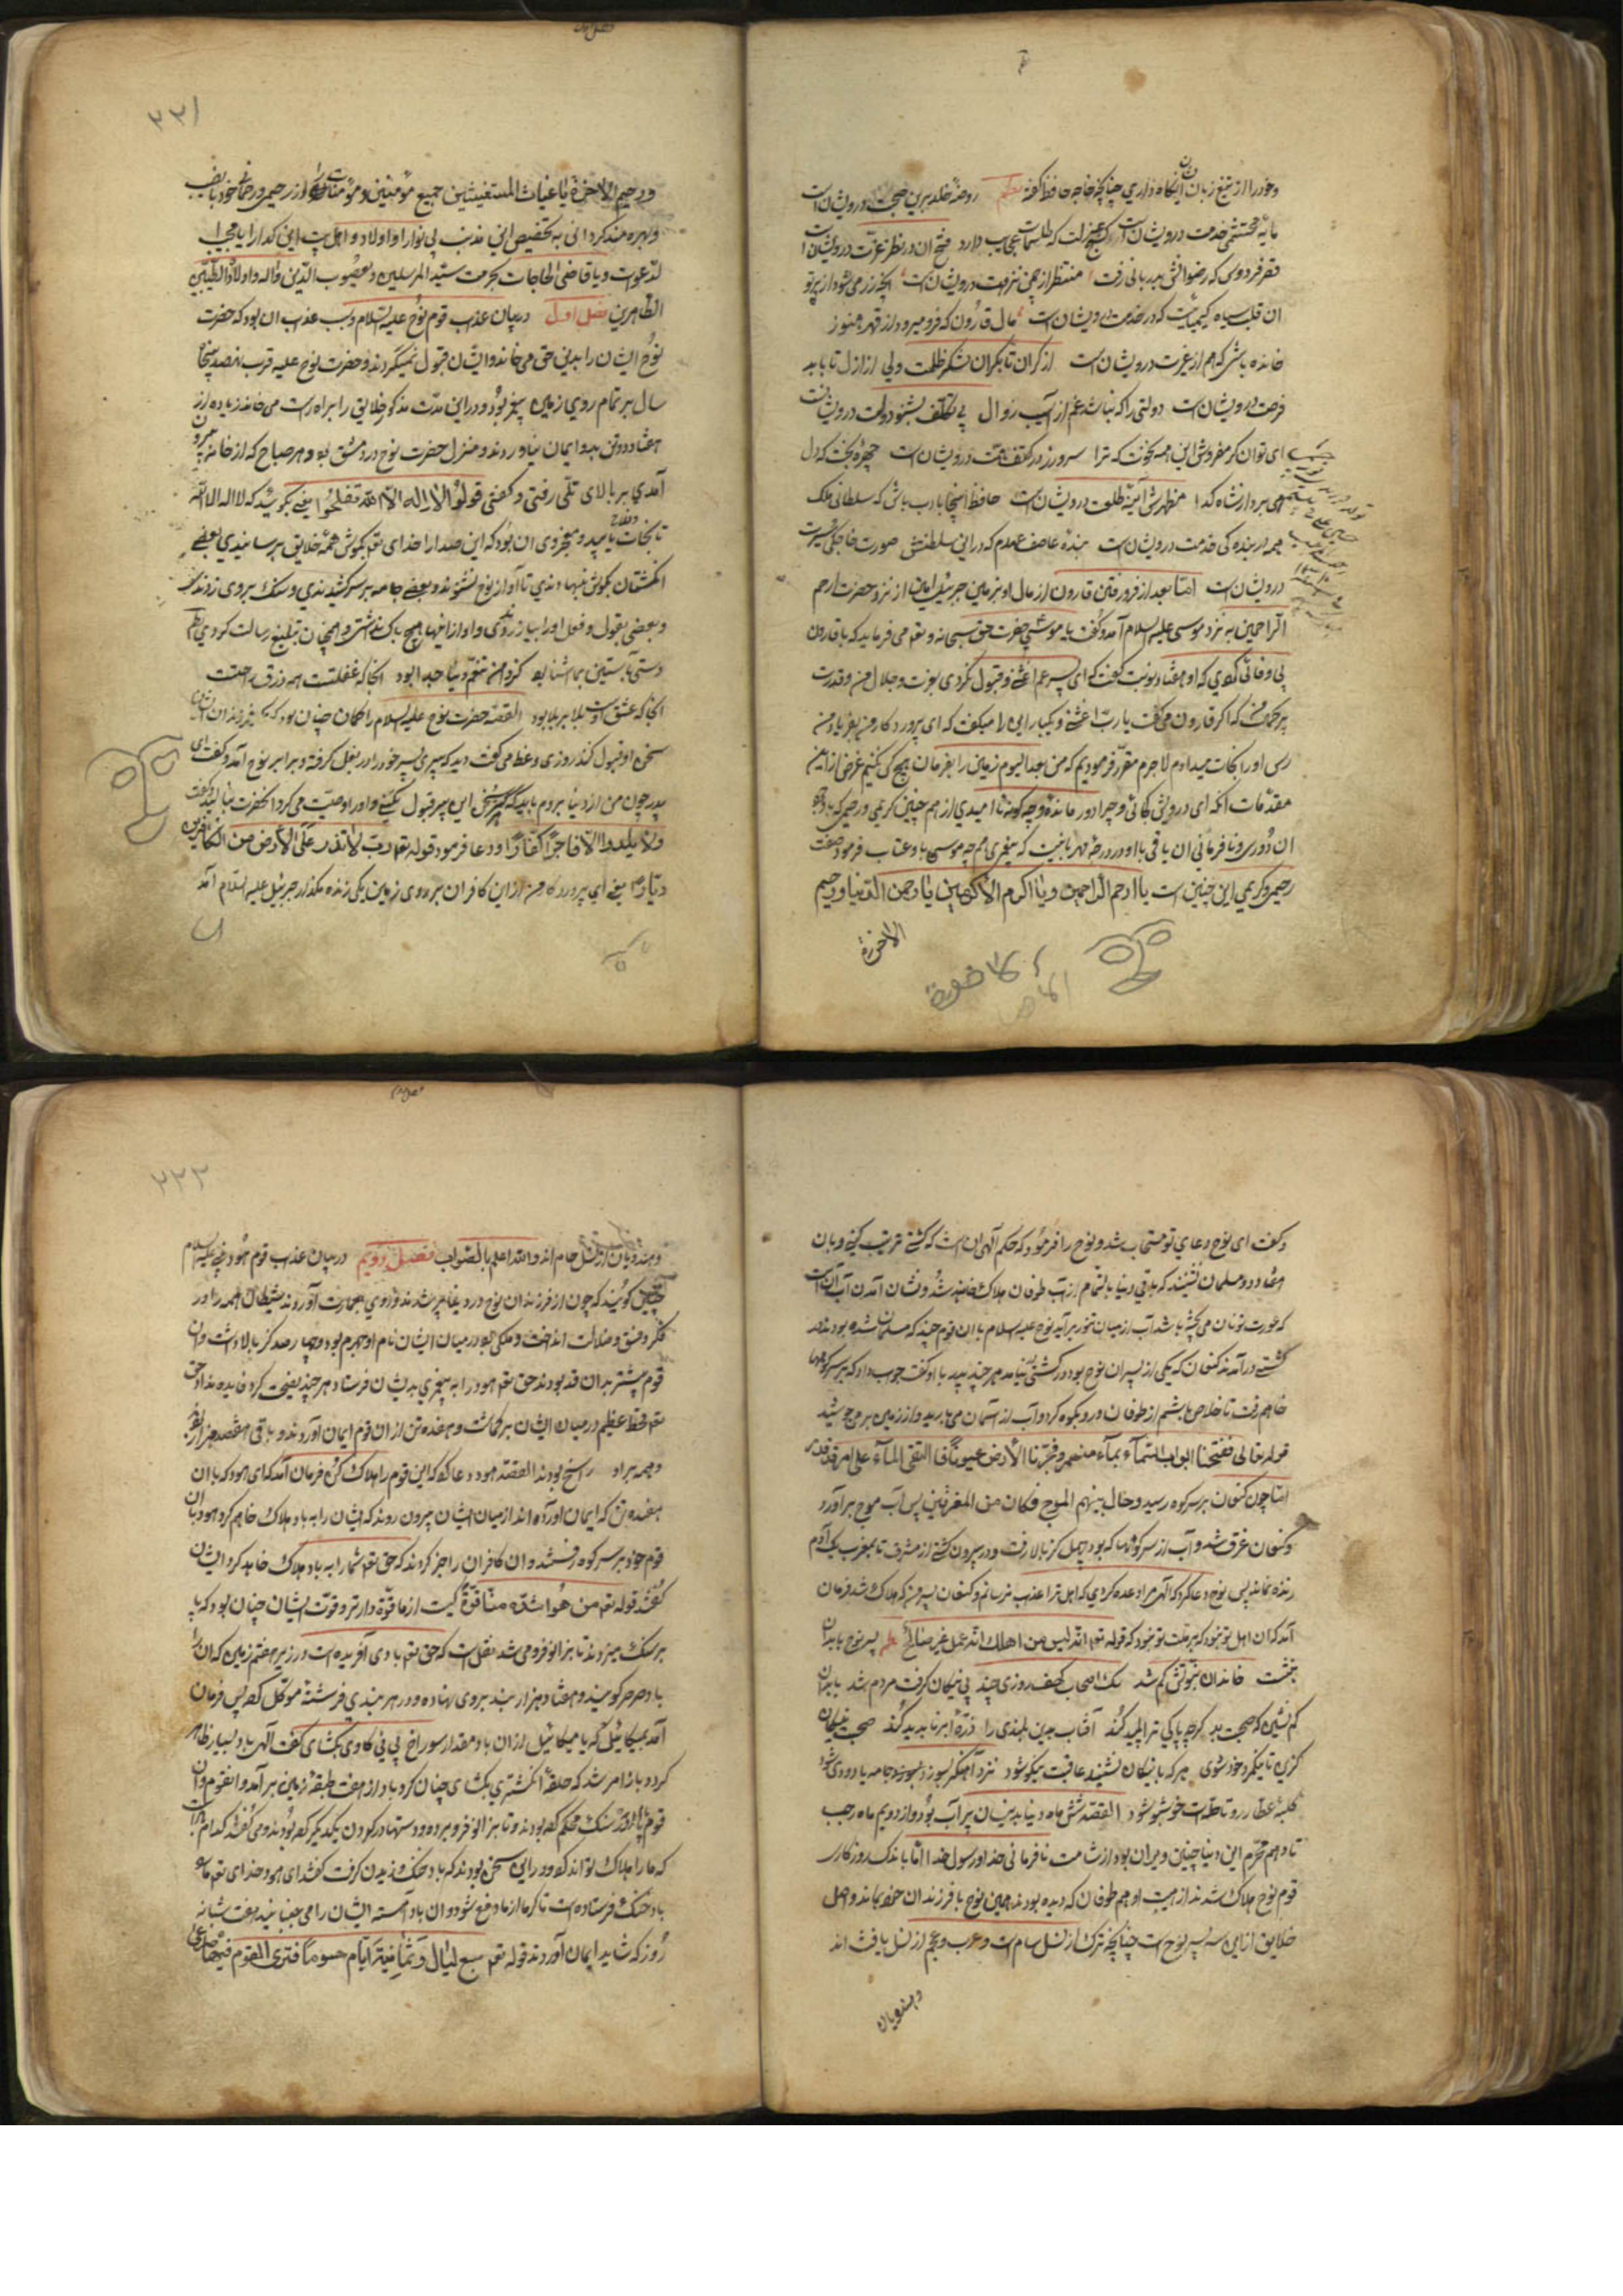 وخود را از تیغ زبان ایشان نگاه داری چنانچه خواجه حافظ گفته نظم روضهٔ خلد برین صحبت درویشان است
مایهٔ محتشمی خدمت درویشان است کنج عزلت که طلسمات عجایب دارد فتح آن در نظر عزت درویشان است
قصر فردوس که رضوانش بدربانی رفت منتظر از چمن نزهت درویشان است آنچه زر می شود از پرتو
آن قلب سیاه کیمیائیست که در خدمت درویشان است مال قارون که فرو میرود از قهر هنوز
خوانده باشی که هم از غیرت درویشان است از کران تا بکران لشکر ظلمت ولی از ازل تا بابد
فرصت درویشان است دولتی را که نباشد غم از آسیب زوال بی تکلف بشنو دولت درویشان است
ای توانگر مفروش این همه نخوت که ترا سر و زر در کنف همت درویشان است چهره بخت که دل
می برد از شاه و گدا مظهرش آینهٔ طلعت درویشان است حافظ اینجا بادب باش که سلطانی و ملک
همه از بنده کی خدمت درویشان است بندهٔ آصف عهدم که در این سلطنتش صورت خواجگی و سیرت
درویشان است اما بعد از فرو رفتن قارون از مال او بزمین جبرئیل امین از نزد حضرت ارحم
الراحمین به نزد موسی علیه السلام آمد و گفت یا موسی حضرت حق سبحانه و تعم می فرماید که با قارون
بی وفائی کردی که او هفتاد نوبت گفت که ای پسر عم اغثنی و قبول نکردی بعزت و جلال من و قدرت
پر حکمت من که اگر قارون می گفت یا رب اغثنی و یکبار این را میگفت که ای پروردکار من بفریاد من
رس او را نجات میدادم لاجرم مقرر فرمودیم که من بعد الیوم زمین را بفرمان هیچ کس نکنیم غرض از این
مقدمات آنکه ای درویش کجائی و چرا دور مانده و چه کونه نا امیدی از هم چنین کریمی و رحیمی که با وجود
آن دوری و نافرمانی آن یاقی با او در درجهٔ مهربانیست که پیغمبری هم چه موسی با و عتاب فرمود صفت
رحیمی و کریمی این چنین است یا ارحم الراحمین و یا اکرم الاکرمین یا رحمن الدنیا و رحیم
الاخرة
۲۲۱
ورحیم الاخرة یا غیاث المستغیثین جمیع مؤمنین و مؤمنات را از رحیمی و رحمانی خود با نصیب
و بهره مند کردانی به تخصیص این مذنب بی نوا را و اولاد و اهل بیت این کدا را یا مجیب
الدعوات و یا قاضی الحاجات بحرمت سید المرسلین و یعسوب الدین و اله و اولاده الطیبین
الطاهرین فصل اول در بیان عذاب قوم نوح علیه السلام و سبب عذاب آن بود که حضرت
نوح ایشان را بدین حق می خواند و ایشان قبول نمیکردند و حضرت نوح علیه قرب نهصد پنجاه
سال بر تمام روی زمین پیغمبر بود و در این مدت مذکور خلایق را براه راست می خواند زیاده از
هفتاد و دو تن بدو ایمان نیاوردند و منزل حضرت نوح در دمشق بود هر صباح که از خانه بیرون
آمدی بر بالای تلی رفتی و گفتی قولوا لا اله الا الله تفلحوا یعنی بگوئید که لا اله الا الله
تا نجات یابید و معجز وی آن بود که این صدا را خدای تعم بگوش همه خلایق می رسانیدی بعضی
انگشتان بگوش نهادندی تا آواز نوح نشنوند و بعضی جامه بر سر کشیدندی و سنگ بر وی زدندی
و بعضی بقول و فعل او را بیازردندی و او از اینها هیچ باک نداشتی و همچنان تبلیغ رسالت کردی نظم
القصه حضرت نوح علیه السلام را گمان چنان بود که
سخن او قبول کنند روزی وعظ می گفت دید که پیری پسر خود را در بغل گرفته و برابر نوح آمد و گفت ای
پدر چون من از دنیا بروم باید که سخن این پیر قبول نکنی و او را وصیت می کرد آنحضرت بنالید و گفت
ولا یلدوا الا فاجرا کفارا و دعا فرمود قوله تعم رب لا تذر علی الارض من الکافرین
دیارا یعنی ای پروردکار من از این کافران بر روی زمین یکی زنده مگذار جبرئیل علیه السلام آمد
و گفت ای نوح دعای تو مستجاب شد و نوح را فرمود که حکم الهی آن است که کشتی ترتیب کنی و با آن
هفتاد و دو مسلمان نشینند که باقی دنیا بالتمام از آب طوفان هلاک خواهند شد و نشان آمدن آب آن است
که عورت تو نان می پخته باشد آب از میان تنور برآید نوح علیه السلام با آن قوم چند که مسلمان شده بودند در
کشتی درآمدند کنعان که یکی از پسران نوح بود در کشتی نیامد هر چند پدر با او گفت جواب داد که بر سر کوهها
خواهم رفت تا خلاص باشم از طوفان و رو بکوه کرد و آب از آسمان می بارید و از زمین بر می جوشید
قوله تعالی ففتحنا ابواب السماء بماء منهمر و فجرنا الارض عیونا فالتقی الماء علی امر قد قدر
اما چون کنعان بر سر کوه رسید و حال بینهم الموج فکان من المغرقین پس آب موج برآورد
و کنعان غرق شد و آب از سر کوهها که بود چهل کز بالا رفت و در بیرون کشتی از مشرق تا بمغرب یک آدم
زنده نماند پس نوح دعا کرد که الهی مرا وعده کردی که اهل ترا عذاب نرسانم و کنعان پسر من که هلاک شد فرمان
آمد که آن اهل تو نبود که بر ملت تو نبود که قوله تعم انه لیس من اهلک انه عمل غیر صالح نظم پسر نوح با بدان
بنشست خاندان نبوتش گم شد سگ اصحاب کهف روزی چند پی نیکان گرفت مردم شد با بدان
کم نشین که صحبت بد گرچه پاکی ترا پلید کند آفتاب بدین بلندی را ذرهٔ ابر ناپدید کند صحبت نیکان
گزین تا نیکمرد خود شوی هر که با نیکان نشیند عاقبت نیکو شود نزد آهنگر بسوزد
کلبه عطار رو تا جامه ات خوشبو شود القصه شش ماه دنیا بدین سان پر آب بود و از دویم ماه رجب
تا دهم محرم این دنیا چنین ویران بود از شامت نافرمانی خدا و رسول خدا اما باندک روزکاری
قوم نوح هلاک شدند از هیبت او هم طوفان که دیده بودند همین نوح با فرزندان خود بماند و اصل
خلایق از این سه پسر نوح است چنانچه ترک از نسل سام است و عرب و عجم از نسل یافث اند
و هندویان
۲۲۲
و هندویان از نسل حام اند والله اعلم بالصواب فصل دویم در بیان عذاب قوم هود نبی علیه السلام
چنین گویند که چون از فرزندان نوح در دنیا پر شدند و روی بعمارت آوردند شیطان همه را در
کفر و فسق و ضلالت انداخت و ملکی بود در میان ایشان نام او جهرم بود و چهار صد کز بالا داشت و آن
قوم بیشتر بدان قد بودند حق تعم هود را به پیغمبری بدیشان فرستاد هر چند نصیحت کرد فایده نداد حق
تعم قحط عظیم در میان ایشان بر گماشت و هفده تن از آن قوم ایمان آوردند و باقی هفتصد هزار نفر
راسخ بودند القصه هود دعا کرد که این قوم را هلاک کن فرمان آمد که ای هود که با آن
هفده تن که ایمان آورده اند از میان ایشان بیرون روند که ایشان را به باد هلاک خواهم کرد هود با آن
قوم خود بر سر کوه رفتند و آن کافران را خبر کردند که حق تعم شما را به باد هلاک خواهد کرد ایشان
گفتند قوله تعم من هو اشد منا قوة کیست از ما قوه دارتر و قوت ایشان چنان بود که پا
بر سنگ میزدند تا بزانو فرو می شد نقل است که حق تعم بادی آفریده است در زیر هفتم زمین که آن را
باد صرصر گویند و هفتاد هزار بند بر وی نهاده و در هر بندی فرشتهٔ موکل کرده پس فرمان
آمد بمیکائیل که یا میکائیل از آن باد مقدار سوراخ بینی گاوی بگشای گفت الهی باد بسیار ظاهر
گردد باز امر شد که حلقه انگشتری بگشای چنان کرد باد از هفت طبقه زمین برآمد و آن قوم
قوم پا در سنگ محکم کرده بودند و تا بزانو فرو برده و دستها در گردن یکدیگر کرده بودند و می گفتند کدام باد است
که ما را هلاک تواند کرد و در این سخن بودند که باد خنک وزیدن گرفت گفتند ای هود خدای تعم ما را
باد خنک فرستاده است تا گرما از ما دفع شود و آن باد آهسته ایشان را می جنبانید هفت شبانه
روز که شاید ایمان آوردند قوله تعم سبع لیال و ثمانیة ایام حسوما فتری القوم فیها صرعی